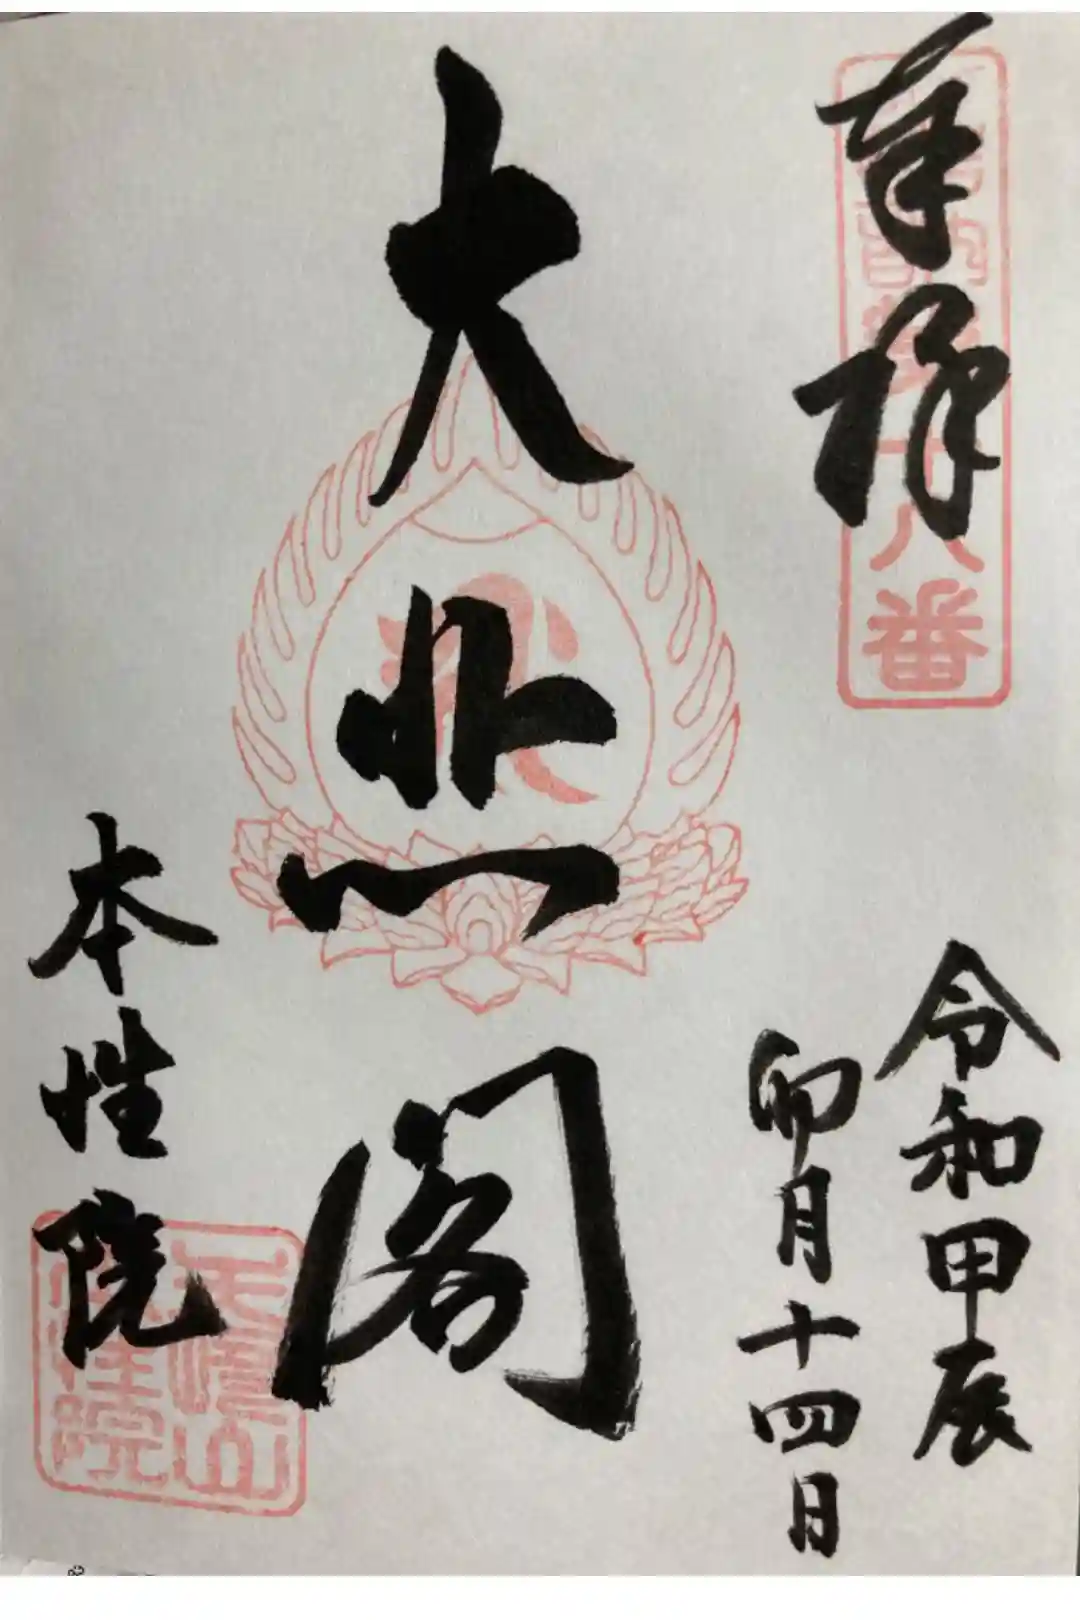 奉拝
十八番
令和甲辰
卯月十四日
大悲閣
本性院
本性院